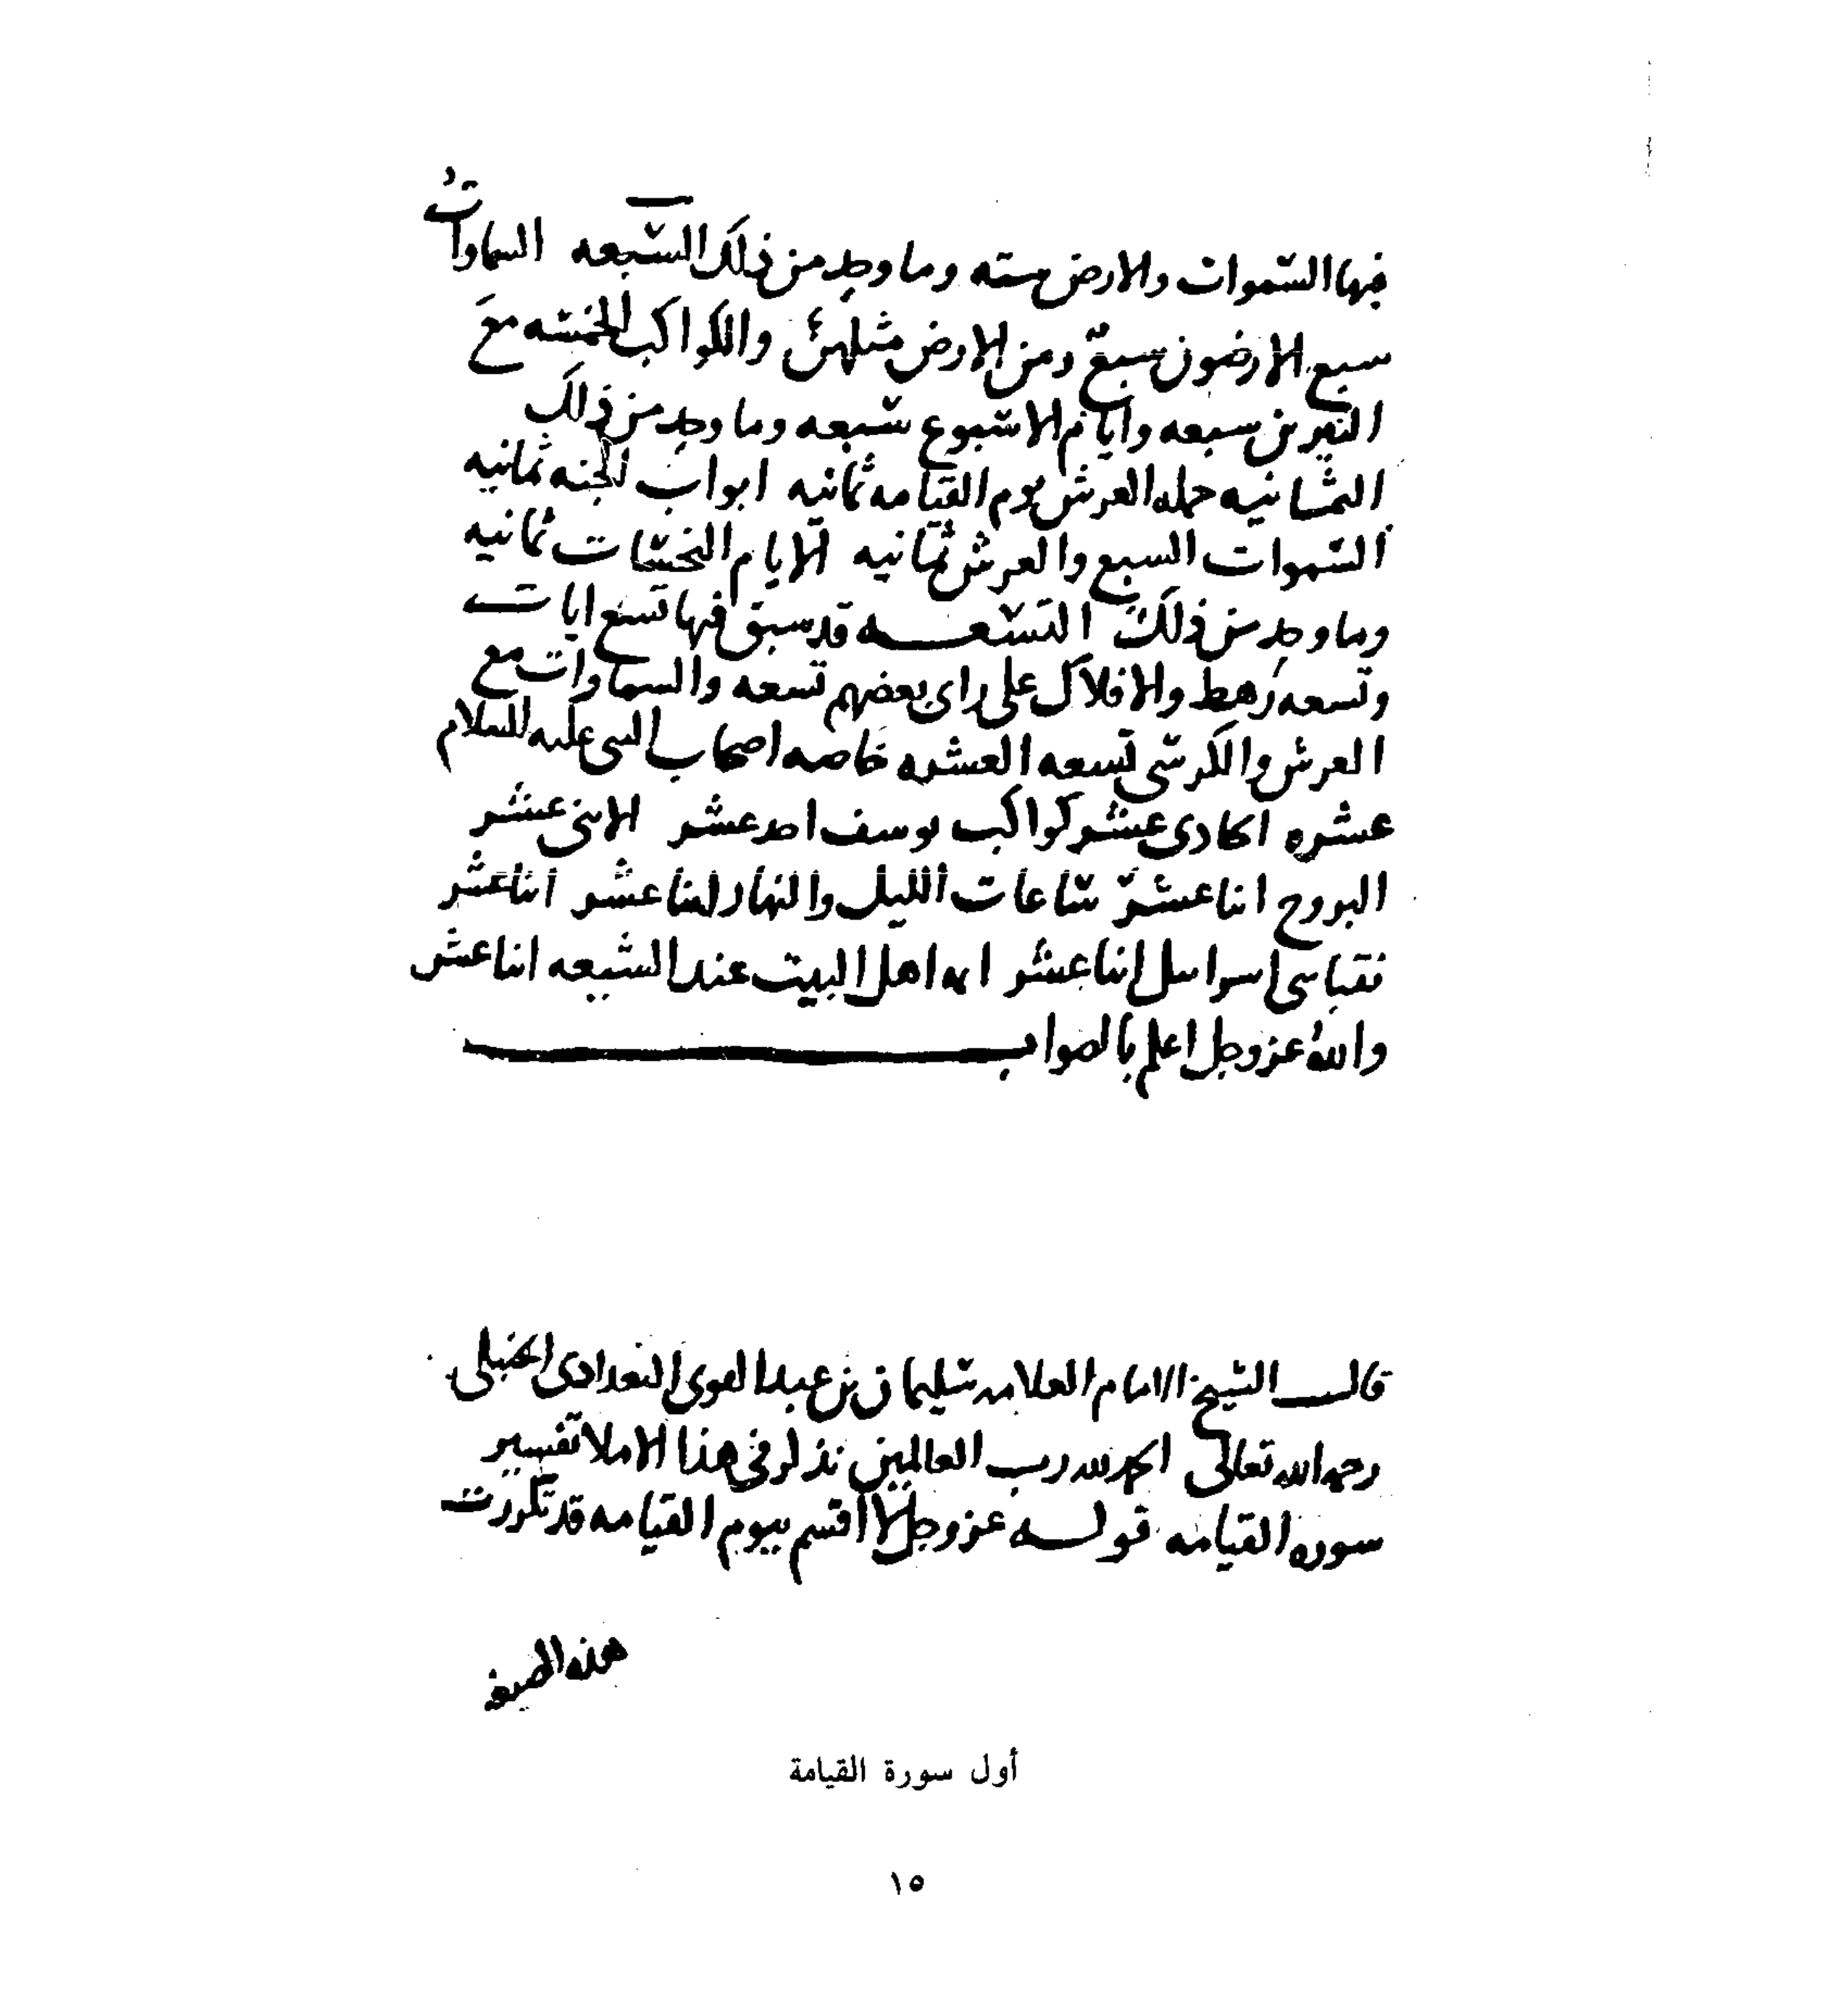 فيها السموات والارض سته وما وجد من ذلك السبعه السماوات
سبع الارضون سبع ومن الارض مثلهن والكواكب الخمسه مع
النيرين سبعه وايام الاسبوع سبعه وما وجد من ذلك
الثمانيه حمله العرش يوم القيامه ثمانيه ابواب الجنه ثمانيه
السموات السبع والعرش ثمانيه الايام النحسات ثمانيه
وما وجد من ذلك التسعه قد سبق فيها تسع ايات
وتسعه رهط والافلاك على راى بعضهم تسعه والسماوات مع
العرش والكرسى تسعه العشره خاصه اصحاب النبى عليه السلام
عشره الحادى عشر كواكب يوسف احد عشر الاثنى عشر
البروج اثنا عشر ساعات الليل والنهار اثنا عشر اثنا عشر
نقبا بنى اسرايل اثنا عشر ايمه اهل البيت عند الشيعه اثنا عشر
والله عز وجل اعلم بالصواب
قال الشيخ الامام العلامه سليمان بن عبد القوى البغدادى الحنبلى
رحمه الله تعالى الحمد لله رب العالمين نذكر فى هذا الاملا تفسير
سوره القيامه قوله عز وجل لا اقسم بيوم القيامه قد تكررت
هذه
أول سورة القيامة
١٥